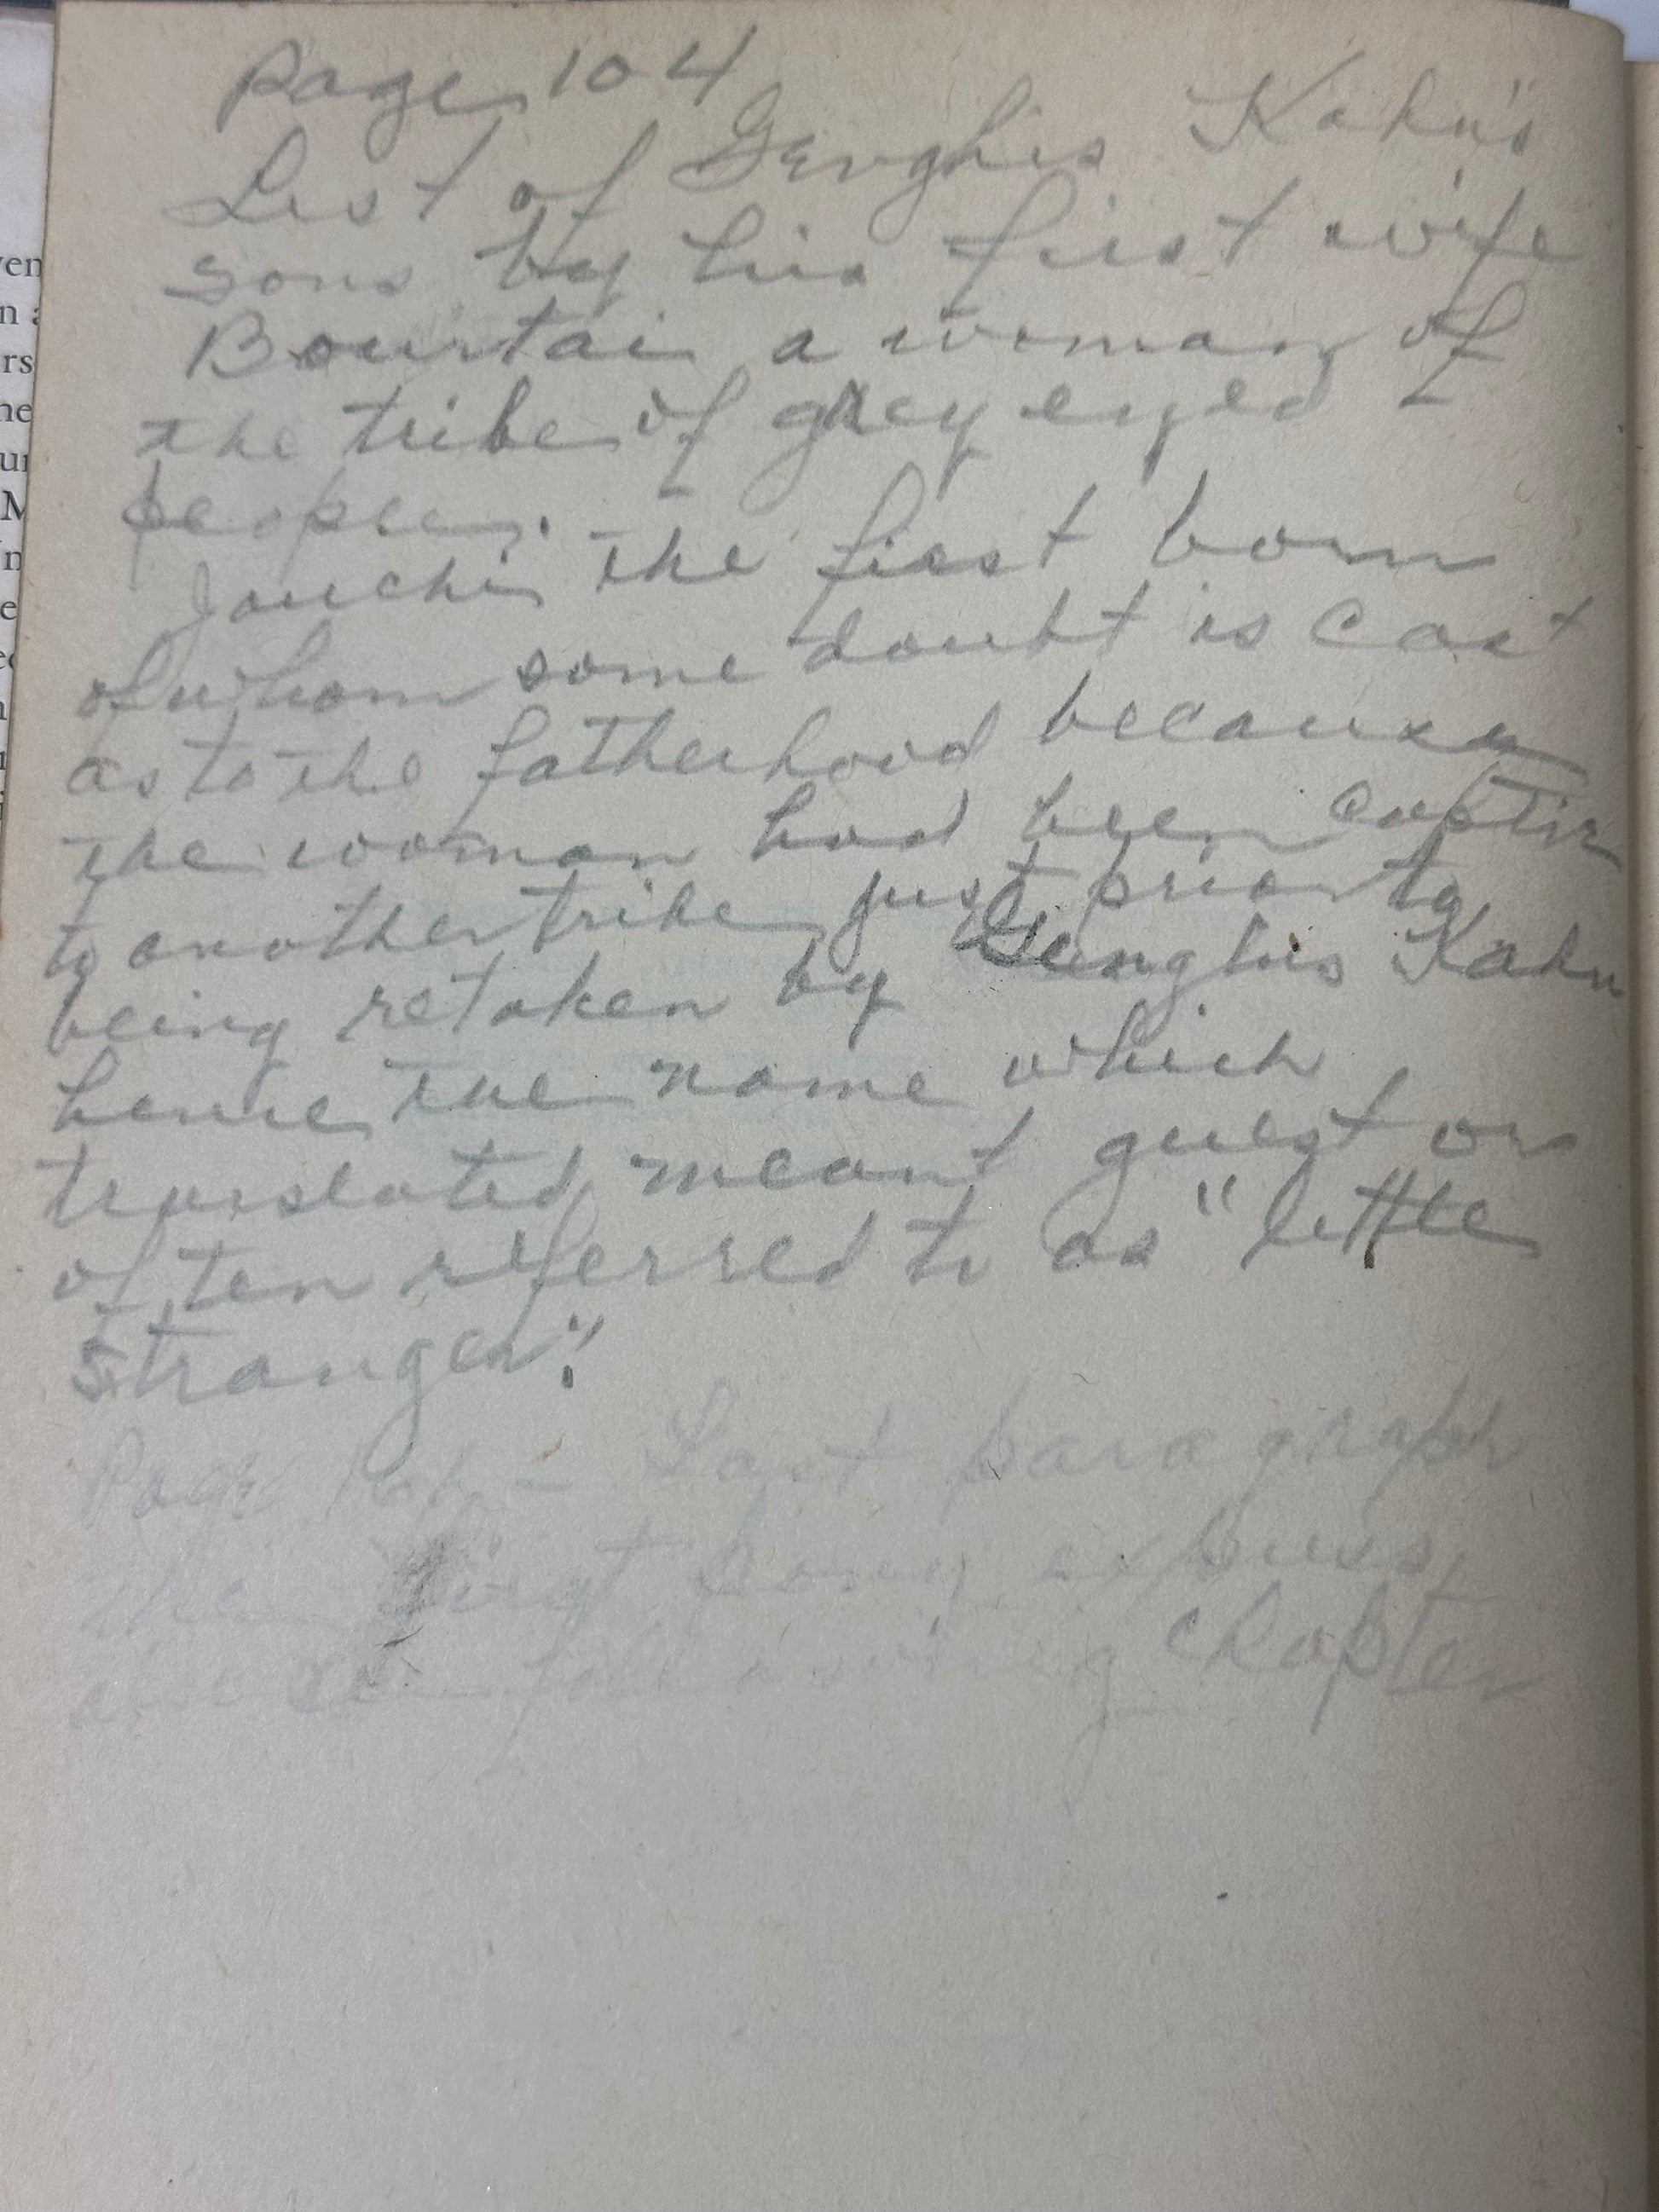 Page 104
List of Genghis Kahn's
sons by his first wife
Bourtai a woman of
the tribe of grey eyed
people.
Jouchi the first born
of whom some doubt is cast
as to the fatherhood because
the woman had been captive
to another tribe just prior to
being retaken by Genghis Kahn
hence the name which
translated meant guest or
often referred to as "little
stranger".
Page - Last paragraph
the first pony express
also see following chapter